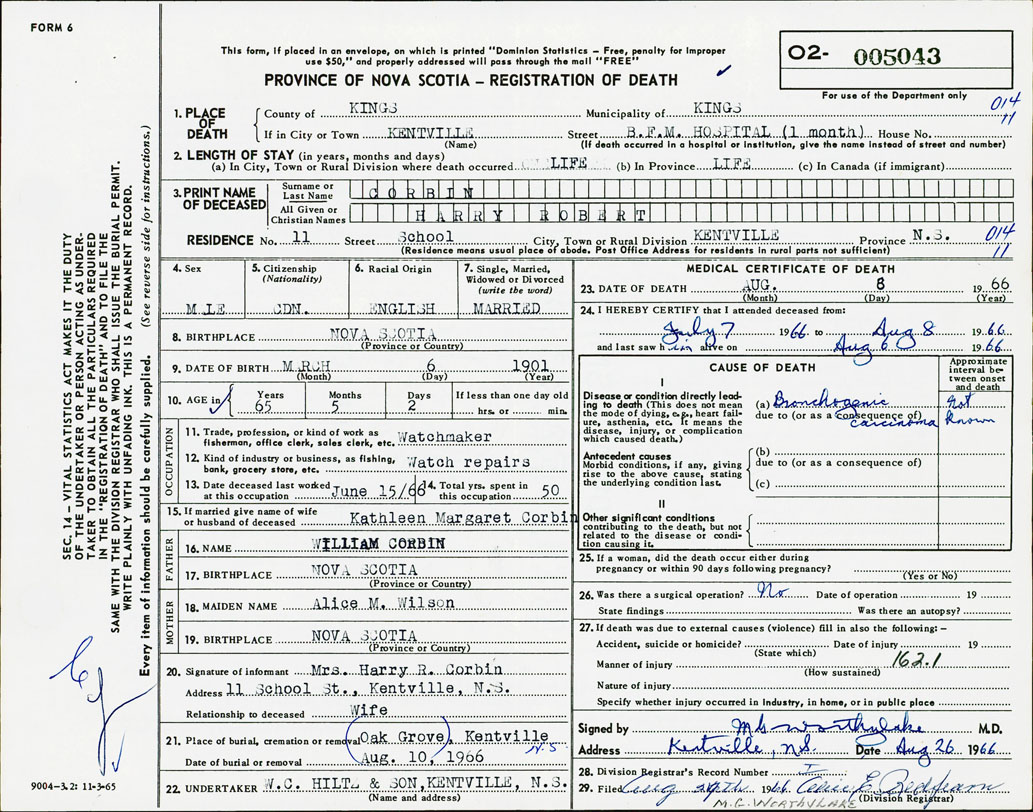 FORM 6
This form, if placed in an envelope, on which is printed "Dominion Statistics – Free, penalty for improper
use $50," and properly addressed will pass through the mail "FREE"
PROVINCE OF NOVA SCOTIA – REGISTRATION OF DEATH
O2- 005043
For use of the Department only
014
11
1. PLACE OF DEATH
County of KINGS Municipality of KINGS
If in City or Town KENTVILLE Street B.F.M. HOSPITAL (1 month) House No.
(Name) (If death occurred in a hospital or institution, give the name instead of street and number)
2. LENGTH OF STAY (in years, months and days)
(a) In City, Town or Rural Division where death occurred LIFE (b) In Province LIFE (c) In Canada (if immigrant)
3. PRINT NAME OF DECEASED
Surname or Last Name CORBIN
All Given or Christian Names HARRY ROBERT
RESIDENCE No. 11 Street School City, Town or Rural Division KENTVILLE Province N.S.
(Residence means usual place of abode. Post Office Address for residents in rural parts not sufficient)
014
11
4. Sex M LE
5. Citizenship (Nationality) CDN.
6. Racial Origin ENGLISH
7. Single, Married, Widowed or Divorced (write the word) MARRIED
8. BIRTHPLACE NOVA SCOTIA
(Province or Country)
9. DATE OF BIRTH MARCH 6 1901
(Month) (Day) (Year)
10. AGE in Years 65 Months 5 Days 2 If less than one day old hrs. or min.
OCCUPATION
11. Trade, profession, or kind of work as fisherman, office clerk, sales clerk, etc. Watchmaker
12. Kind of industry or business, as fishing, bank, grocery store, etc. Watch repairs
13. Date deceased last worked at this occupation June 15/66
14. Total yrs. spent in this occupation 50
15. If married give name of wife or husband of deceased Kathleen Margaret Corbin
FATHER
16. NAME WILLIAM CORBIN
17. BIRTHPLACE NOVA SCOTIA
(Province or Country)
MOTHER
18. MAIDEN NAME Alice M. Wilson
19. BIRTHPLACE NOVA SCOTIA
(Province or Country)
20. Signature of informant Mrs. Harry R. Corbin
Address 11 School St., Kentville, N.S.
Relationship to deceased Wife
21. Place of burial, cremation or removal Oak Grove, Kentville
N.S
Date of burial or removal Aug. 10, 1966
22. UNDERTAKER W.C. HILTZ & SON, KENTVILLE, N.S.
(Name and address)
MEDICAL CERTIFICATE OF DEATH
23. DATE OF DEATH AUG. 8 1966
(Month) (Day) (Year)
24. I HEREBY CERTIFY that I attended deceased from:
July 7 1966 to Aug 8 1966
and last saw him alive on Aug 6 1966
CAUSE OF DEATH
Approximate interval between onset and death
I
Disease or condition directly leading to death (This does not mean the mode of dying, e.g., heart failure, asthenia, etc. It means the disease, injury, or complication which caused death.)
(a) Bronchogenic carcinoma
not known
due to (or as a consequence of)
Antecedent causes
Morbid conditions, if any, giving rise to the above cause, stating the underlying condition last.
(b)
due to (or as a consequence of)
(c)
II
Other significant conditions contributing to the death, but not related to the disease or condition causing it.
25. If a woman, did the death occur either during
pregnancy or within 90 days following pregnancy?
(Yes or No)
26. Was there a surgical operation? No Date of operation 19
State findings Was there an autopsy?
27. If death was due to external causes (violence) fill in also the following: –
Accident, suicide or homicide? Date of injury 19
(State which)
Manner of injury 162.1
(How sustained)
Nature of injury
Specify whether injury occurred in industry, in home, or in public place
Signed by MG Worthylake M.D.
Address Kentville, N.S. Date Aug 26 1966
28. Division Registrar's Record Number
29. Filed Aug 1966
(Division Registrar)
M.G. WORTHYLAKE
SEC. 14 – VITAL STATISTICS ACT MAKES IT THE DUTY
OF THE UNDERTAKER OR PERSON ACTING AS UNDER-
TAKER TO OBTAIN ALL THE PARTICULARS REQUIRED
IN THE "REGISTRATION OF DEATH" AND TO FILE THE
SAME WITH THE DIVISION REGISTRAR WHO SHALL ISSUE THE BURIAL PERMIT.
WRITE PLAINLY WITH UNFADING INK. THIS IS A PERMANENT RECORD.
Every item of information should be carefully supplied. (See reverse side for instructions.)
9004–3.2: 11-3-65